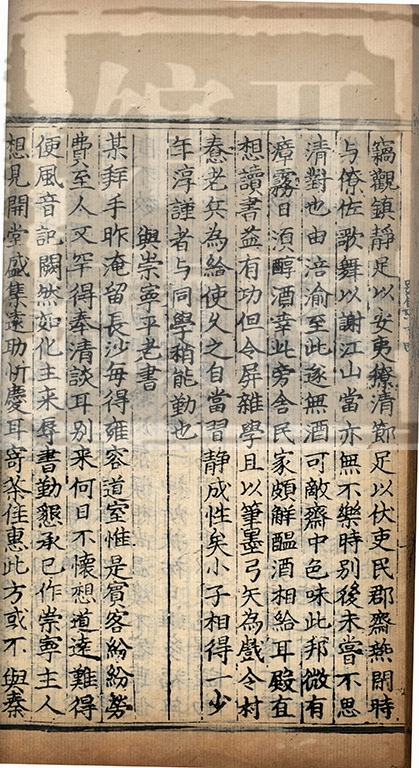 竊觀鎮靜足以安夷獠清節足以伏吏民郡齋燕閒時
与僚佐歌舞以謝江山當亦無不樂時別後未嘗不思
清對也由涪渝至此遂無酒可敵齋中色味此邦微有
瘴霧日須醇酒幸此旁舍民家頗解醞酒相給耳殿直
想讀書益有功但令屏雜學且以筆墨弓矢為戲令村
憃老兵為給使久之自當習靜成性矣小子相得一少
年淳謹者与同學稍能勤也
與崇寧平老書
某拜手昨淹留長沙每得雍容道室惟是賓客紛紛勞
費至人又罕得奉清談耳別来何日不懷想道遠難得
便風音記闕然如化主来辱書勤懇承已作崇寧主人
想見開堂盛集遠助忻慶耳寄茶佳惠此方或不與秦